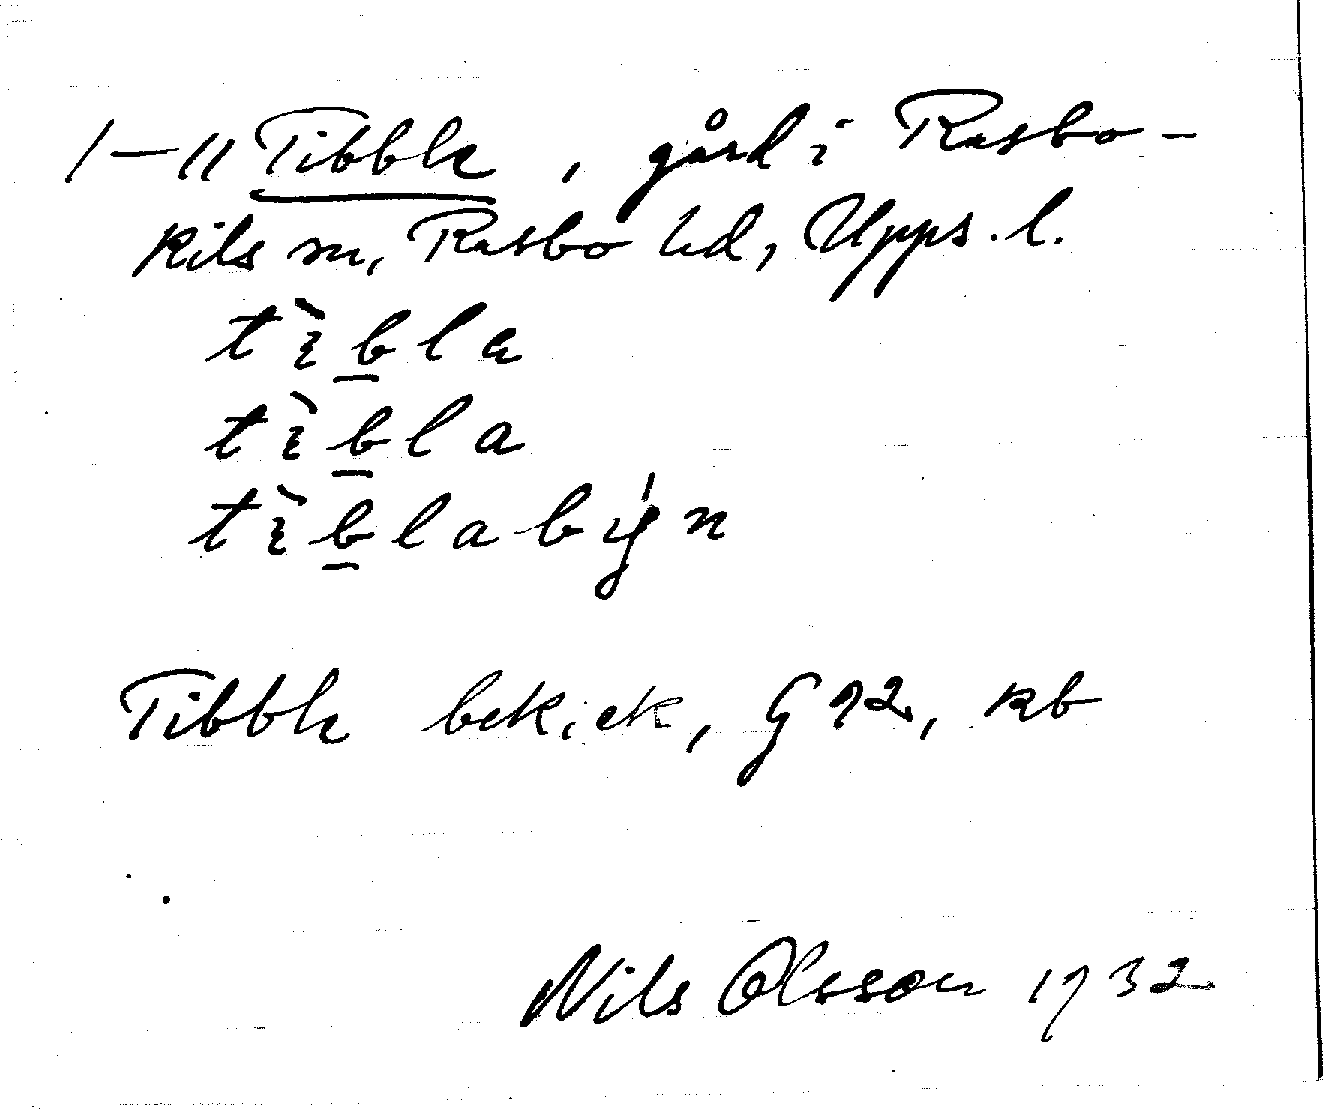 1–11 Tibble, gård i Rasbo-
kils sn, Rasbo hd, Upps. l.
tìb̲la
tìb̲la
tìb̲labýn
Tibble bek.ek, G 72, kb
Nils Olsson 1932